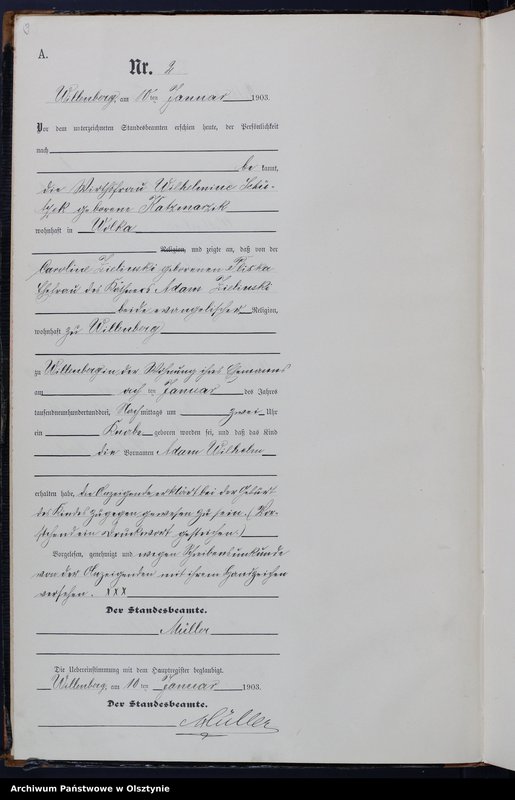 A.
Nr. 2
Willenberg, am 10ten Januar 1903.
Vor dem unterzeichneten Standesbeamten erschien heute, der Persönlichkeit
nach
be kannt,
die Wirthsfrau Wilhelmine
geborene Katzmarzik
wohnhaft in Wolka
Religion, und zeigte an, daß von der
Caroline Zielinski geborenen
Ehefrau des Käthners Adam Zielinski
beide evangelischer Religion,
wohnhaft zu Willenberg
zu Willenberg in der Wohnung ihres Ehemannes
am acht ten Januar des Jahres
tausendneunhundertunddrei, Nachmittags um zwei Uhr
ein Knabe geboren worden sei, und daß das Kind
die Vornamen Adam Wilhelm
erhalten habe, die Anzeigende erklärt bei der Geburt
des Kindes zugegen gewesen zu sein. (Vor-
stehend ein Druckwort gestrichen.)
Vorgelesen, genehmigt und wegen Schreibensunkunde
von der Anzeigenden mit ihrem Handzeichen
versehen. XXX
Der Standesbeamte.
Müller
Die Uebereinstimmung mit dem Hauptregister beglaubigt.
Willenberg, am 10 ten Januar 1903.
Der Standesbeamte.
Müller
Archiwum Państwowe w Olsztynie